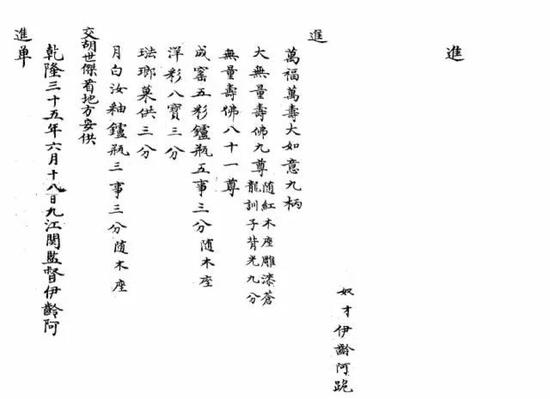 進
奴才伊齡阿跪
進
萬福萬壽大如意九柄
大無量壽佛九尊
随紅木座雕漆蒼
龍訓子背光九分
無量壽佛八十一尊
成窑五彩鑪瓶五事三分随木座
洋彩八寶三分
琺瑯菓供三分
月白汝釉鑪瓶三事三分随木座
交胡世傑看地方安供
乾隆三十五年六月十八日九江関監督伊齡阿
進单